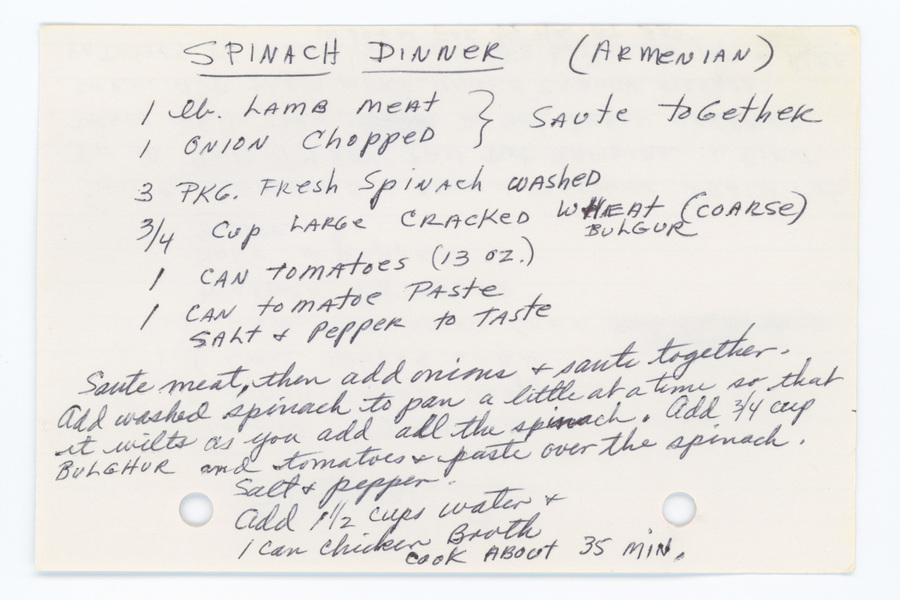 SPINACH DINNER (ARMENIAN)
1 lb. LAMB MEAT } SAUTE TOGETHER
1 ONION Chopped
3 PKG. FRESH SPINACH WASHED
3/4 CUP LARGE CRACKED WHEAT (COARSE)
BULGUR
1 CAN TOMATOES (13 OZ.)
1 CAN TOMATOE PASTE
SALT & PEPPER TO TASTE
Saute meat, then add onions & saute together.
Add washed spinach to pan a little at a time so that
it wilts as you add all the spinach. Add 3/4 cup
BULGHUR and tomatoes & paste over the spinach.
Salt & pepper.
Add 1 1/2 cups water &
1 can chicken Broth
COOK ABOUT 35 MIN.